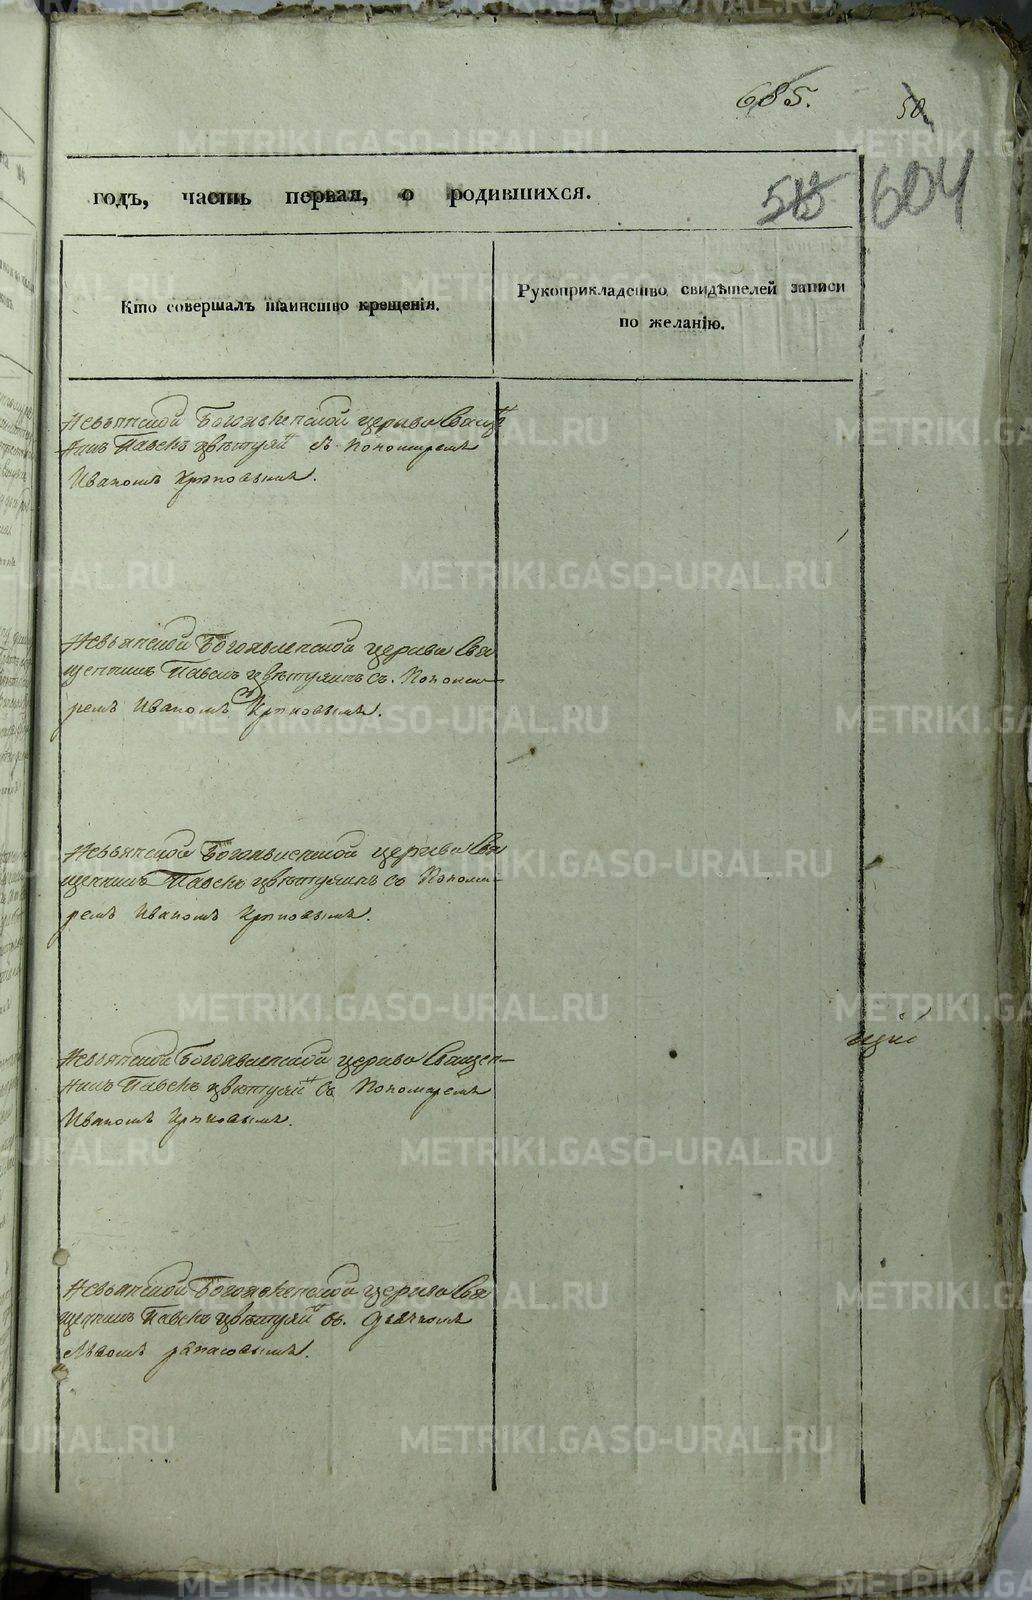 685.
50
годъ, часть первая, о родившихся.
515
604
Кто совершалъ таинство крещенія.
Рукоприкладство свидѣтелей записи
по желанію.
Невьянской Богоявленской церкви Свящ
никъ Павелъ Цвѣтухинъ съ Пономаремъ
Иваномъ
Невьянской Богоявленской церкви Свя
щенникъ Павелъ Цвѣтухинъ съ. Понома
ремъ Иваномъ
Невьянской Богоявленской церкви Свя
щенникъ Павелъ Цвѣтухинъ съ Понома
ремъ Иваномъ
Невьянской Богоявленской церкви Священ
никъ Павелъ Цвѣтухинъ съ Пономаремъ
Иваномъ
Невьянской Богоявленской церкви Свя
щенникъ Павелъ Цвѣтухинъ съ. Дьячкомъ
METRIKI.GASO-URAL.RU